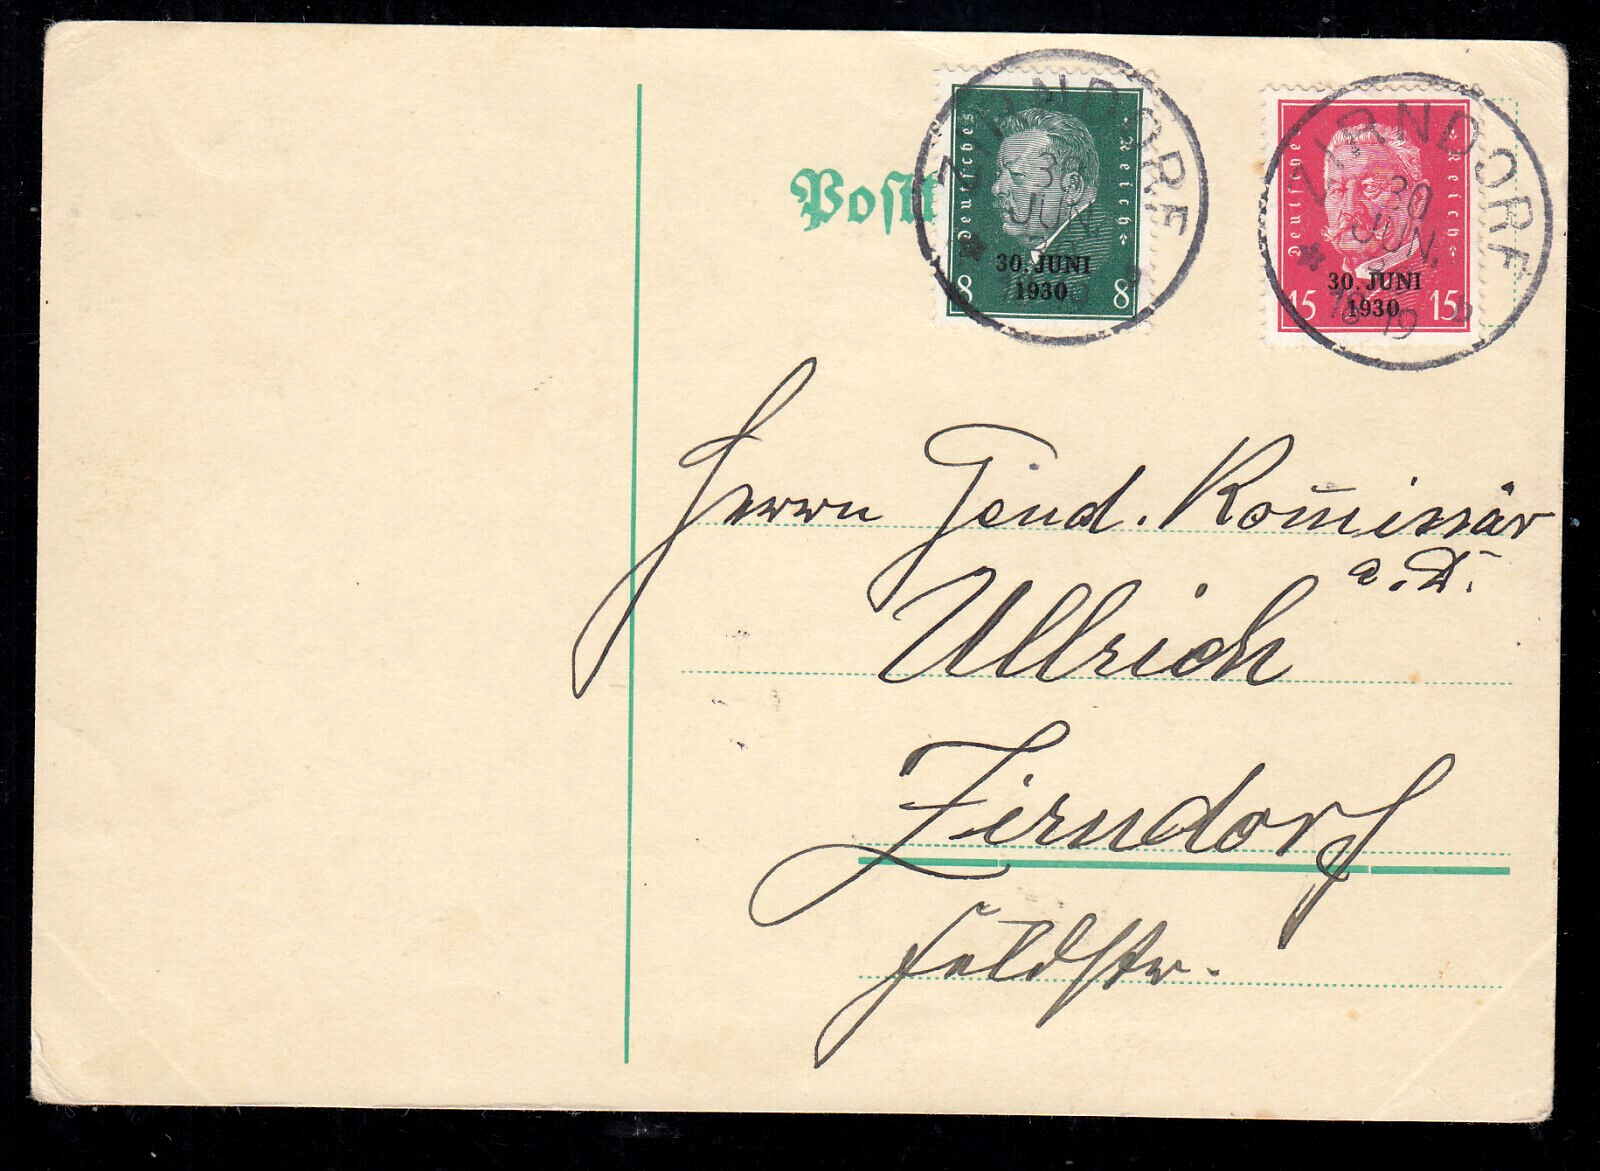 Post
Deutsches Reich
30. JUNI
1930
8 8
ZIRNDORF
30
JUN.
Deutsches Reich
30. JUNI
1930
15 15
ZIRNDORF
30
JUN.
18-19
Herrn Gend. Kom̅issär
a. D.
Ullrich
Zirndorf
Feldstr.